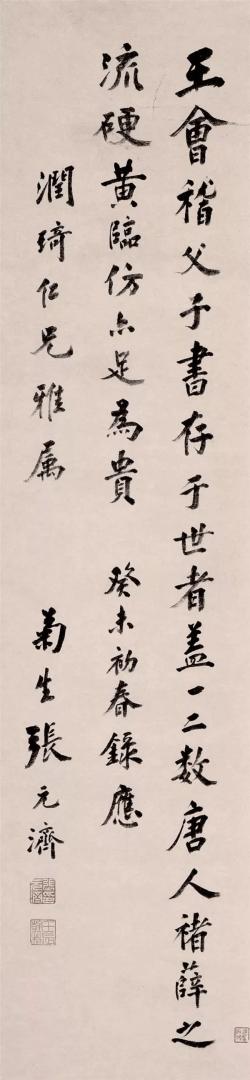 王會稽父子書存于世者蓋一二數唐人褚薛之
流硬黃臨仿亦足為貴 癸未初春錄應
潤琦仁兄雅属 菊生張元濟